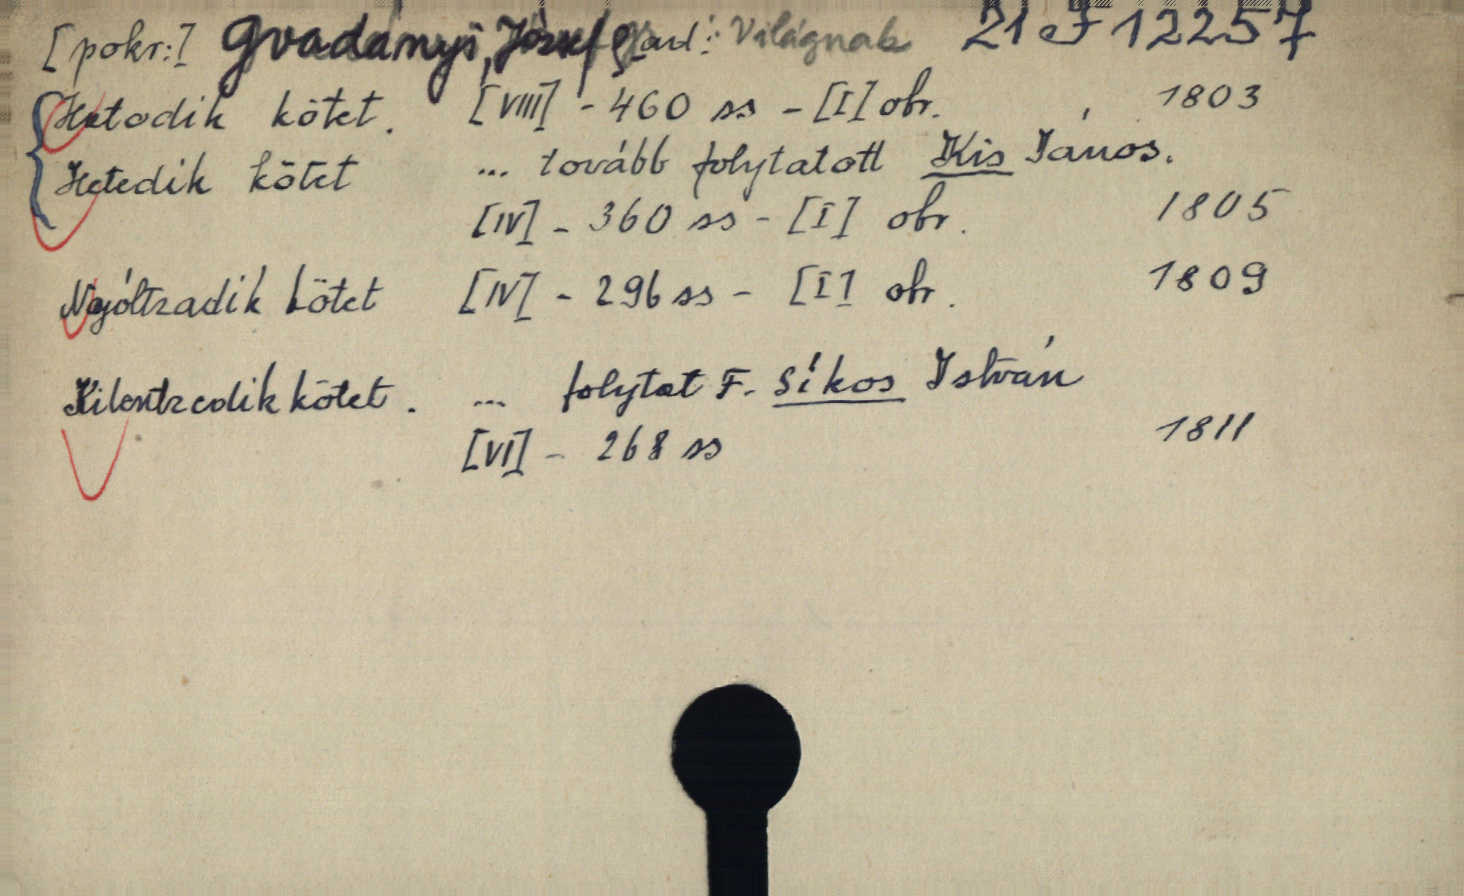 [pokr:] Gvadányi, József Világnak 21 F 12257
Hatodik kötet. [VIII] - 460 ss - [I] obr. 1803
Hetedik kötet ... tovább folytatott Kis János.
[IV] - 360 ss - [I] obr. 1805
Nyóltzadik kötet [IV] - 296 ss - [I] obr. 1809
Kilentzedik kötet. ... folytat F. Síkos István
[VI] - 268 ss 1811